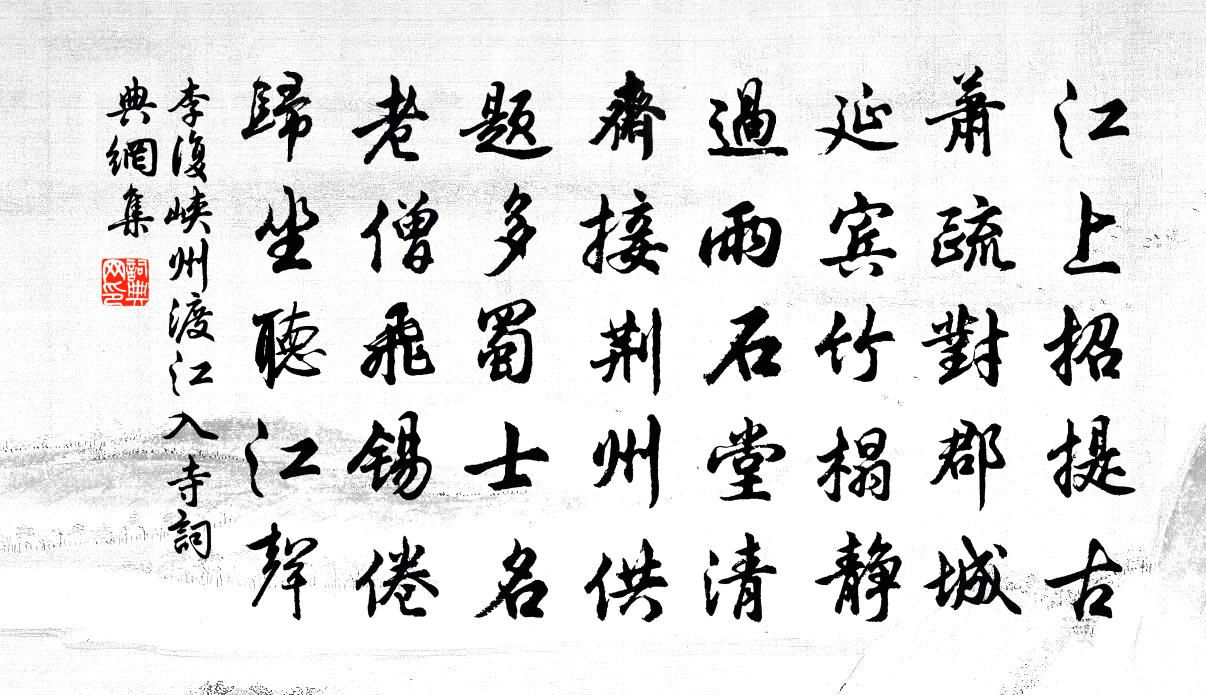 江上招提古
蕭疏對郡城
延宾竹榻静
過雨石堂清
齋接荆州供
題多蜀士名
老僧飛錫倦
歸坐聽江聲
李復峽州渡江入寺詞
典網集
詞典
网印